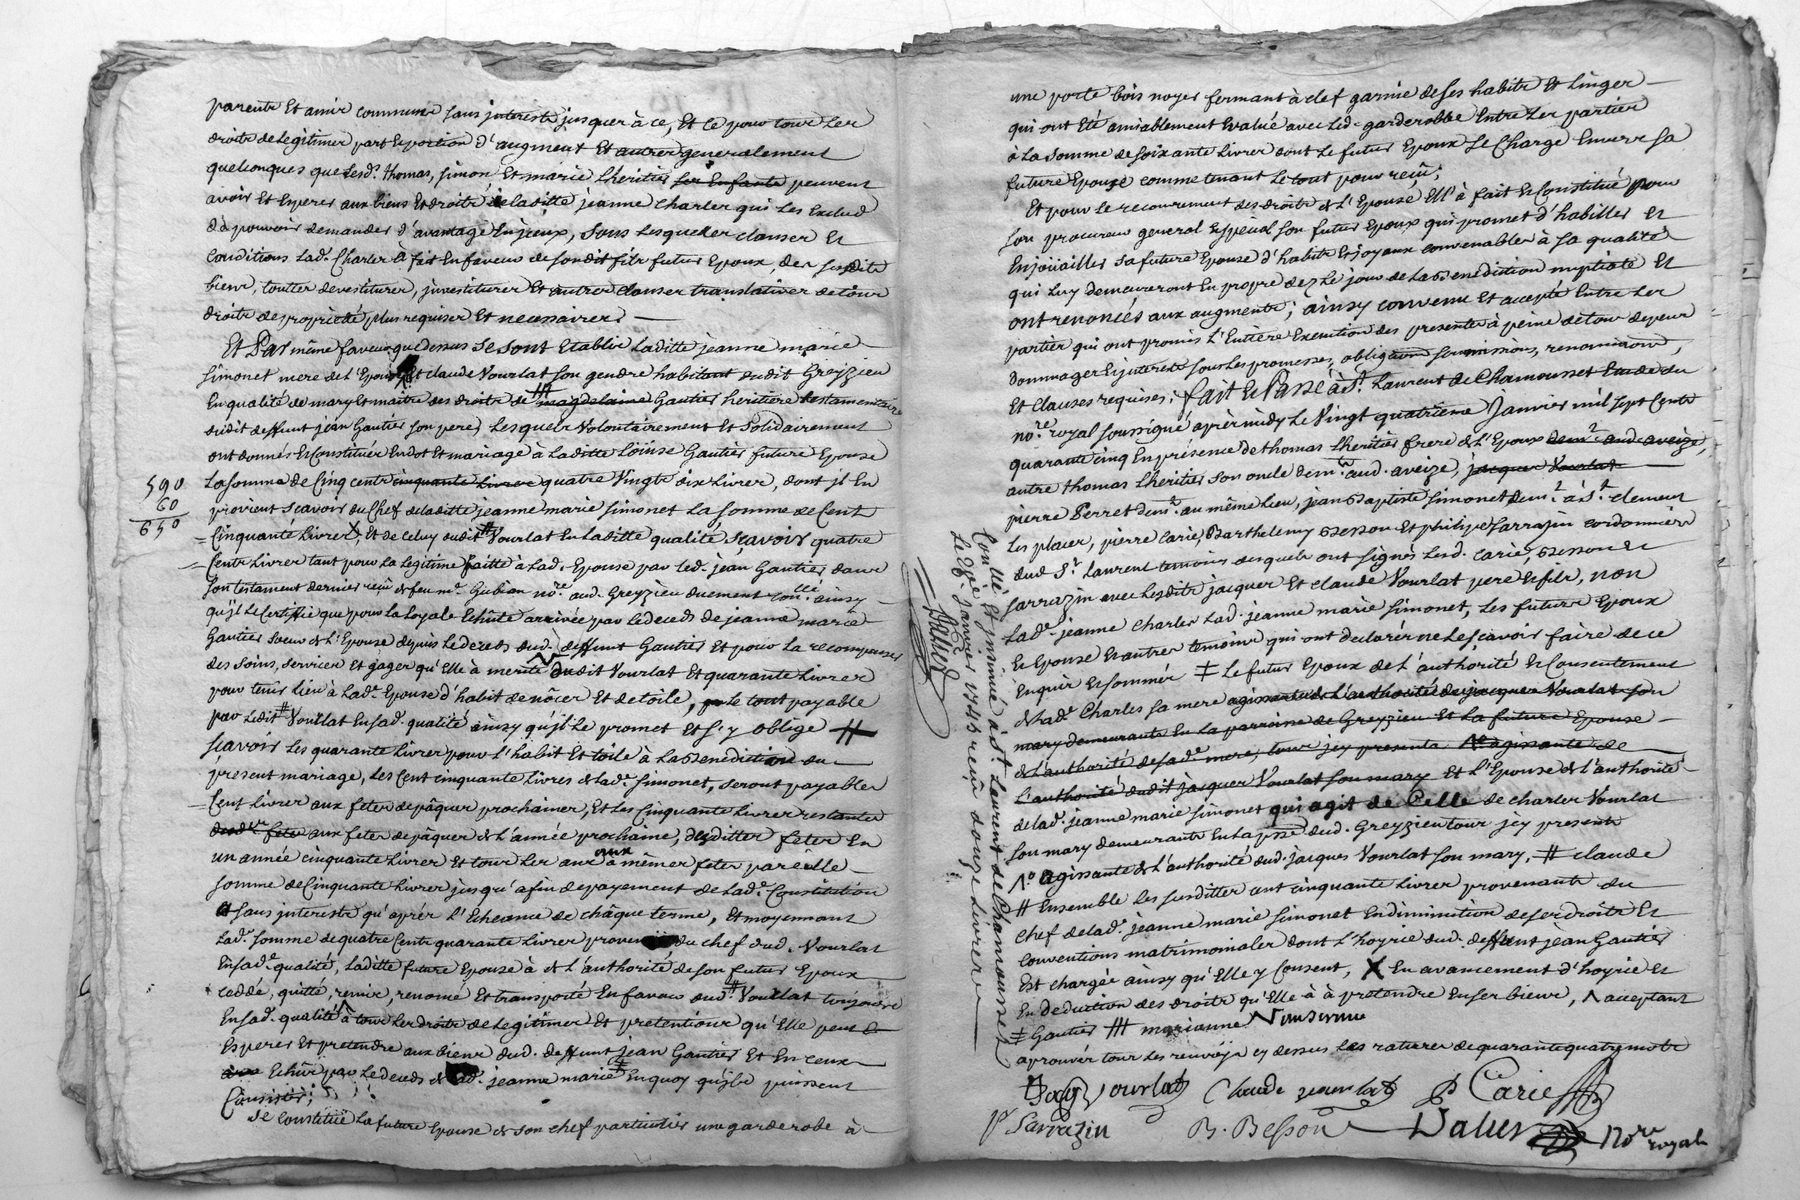 parents et amis communs sans interests jusques à ce, Et ce pour tous les
droits de legitimes part et portion d'augment et autres generalement
quelconques que lesd. thomas, simon, Et marie lheritier ses Enfants peuvent
avoir Et Esperer aux biens Et droits de laditte jeanne charles qui les Exclud
de pouvoir demander d'avantage En jceux, sous lesquelles clauses Et
conditions lad. Charles a fait En faveur de son dit fils futur Epoux, des susdits
biens, touttes devestitures, jnvestitures Et autres clauses translatives de tous
droits de proprieté plus requises Et necessaires
Et Par même faveur que dessus se sont Etablis Laditte jeanne marie
Simonet mere de l'Epouse Et claude Vourlat son gendre habitant dudit Greyzieu
En qualité de mary Et maitre des droits de # magdelaine Gautier heritiere testamentaire
dudit deffunt jean Gautier son pere, Lesquels Volontairement Et Solidairement
ont donnés Et Constitués En dot Et mariage à Laditte Loüise Gautier future Epouse
La somme de Cinq cents cinquante Livres quatre Vingts dix Livres, dont jl En
590
60
650
provient scavoir du Chef de laditte jeanne marie Simonet La somme de Cent
Cinquante Livres X, Et de Celuy dudit # Vourlat En Laditte qualité, scavoir quatre
Cents Livres tant pour La legitime faitte à Lad. Epouse par led. jean Gautier dans
son testament dernier reçu de feu me. Gubian nore. aud. Greyzieu duement conllé. ainsy
qu'jl le Certiffie que pour La Loyale Echûte arrivée par Le deceds de jeanne marie
Gautier soeur de L'Epouse depuis Le deceds dud. deffunt Gautier Et pour La recompenser
des soins, services Et gages qu'Elle à merité dudit Vourlat Et quarante Livres
pour tenir lieu à Lade. Epouse d'habit de nôces Et de toile, Le tout payable
par Ledit # Vourlat En sad. qualité ainsy qu'jl Le promet Et s'y oblige #
scavoir Les quarante Livres pour l'habit Et toile à La Benediction du
present mariage, Les Cent cinquante Livres de lade. Simonet, seront payables
Cent Livres aux fetes de pâques prochaines, Et Les Cinquante Livres restantes
aux fetes de pâques de L'année prochaine, desdittes fetes En
un année cinquante Livres Et tous Les ans aux mêmes fetes pareille
somme de Cinquante Livres jusqu'a fin de payement de Lade. Constitution
sans interests qu'aprés L'Echeance de châque terme, Et moyennant
Lade. somme de quatre Cents quarante Livres provenüe du chef dud. Vourlat
En sade. qualité, Laditte future Epouse à de L'authorité de son futur Epoux
ceddé, quitte, remis, renoncé Et transporté En faveur dud. # Vourlat toujours
En sad. qualité à tous Les droits de Legitimes Et pretentions qu'Elle peut
Esperer Et pretendre aux biens dud. deffunt jean Gautier Et En ceux
Echûs par Le deceds de lad. jeanne marie ≠ En quoy qu'jls puissent
Consister;
Se constitüe La future Epouse de son chef particulier une garderobe à
une porte bois noyer fermant à clef garnie de ses habits Et Linges
qui ont Eté amiablement Evalué avec Lad. garderobbe Entre Les parties
à La somme de soixante Livres dont Le futur Epoux se Charge Envers sa
future Epouse comme tenant Le tout pour reçû;
Et pour Le recouvrement des droits de L'Epouse Ell'à fait Et Constitué pour
son procureur general Et special son futur Epoux qui promet d'habiller Et
Enjoüailler sa future Epouse d'habits Et joyaux convenables à sa qualité
qui Luy demeureront En propre dez Le jour de La Benediction nuptiale Et
ont renoncés aux augments; ainsy convenu Et accepté Entre Les
parties qui ont promis L'Entiere Execution des presentes à peine de tous depens
dommages Et jnterests sous Les promesses, obligations soumissions, renonciations,
Et clauses requises, fait Et Passé à St. Laurent de Chamousset Etude du
nore. royal soussigné aprés midy Le Vingt quatrieme Janvier mil sept Cents
quarante cinq En présence de thomas Lheritier frere de L'Epoux demt. aud. aveize,
autre thomas Lheritier son oncle demt. aud. aveize, jacques Vourlat
pierre Perret demt. au même Lieu, jean Baptiste Simonet demt. à St. clement
Les places, pierre Carie, Barthelemy Besson Et philipe Sarrazin cordonnier
dud. St. Laurent temoins desquels ont signés Lesd. Carie, Besson Et
Sarrazin avec Lesdits jacques Et claude Vourlat pere Et fils, non
Lade. jeanne Charles Lad. jeanne marie Simonet, Les futurs Epoux
Et Epouse Et autres temoins qui ont declarés ne Le scavoir faire de ce
Enquis Et sommés ≠ Le futur Epoux de L'authorité Et Consentement
de lade. Charles sa mere agissante de L'authorité de jacques Vourlat son
mary demeurants En La parroisse de Greyzieu Et La future Epouse
de L'authorité de sade. mere, tous jcy presents agissante de
L'authorité dudit jacques Vourlat son mary Et L'Epouse de L'authorité
de lad. jeanne marie Simonet qui agit de Celle de charles Vourlat
son mary demeurants En La psse dud. Greyzieu tous jcy presents
1o agissante de L'authorité dud. jacques Vourlat son mary, # claude
# Ensemble Les susdittes cent cinquante Livres provenants du
chef de lad. jeanne marie Simonet En diminution de ses droits Et
conventions matrimoniales dont L'hoyrie dud. deffunt jean Gautier
Est chargée ainsy qu'Elle y Consent, X En avancement d'hoyrie Et
En deduction des droits qu'Elle à à pretendre En ses biens, acceptant
≠ Gautier ## marianne
aprouvés tous Les renvojs cy dessus Les ratures de quarante quatre mots
Jacq vourlat Claude vourlat P Carie
P Sarrazin B. Besson Dalus Nore royal
Conllé Et jnsinué à St. Laurent de Chamousset
Le 26e janvier 1745 reçû douze Livres
Dalus